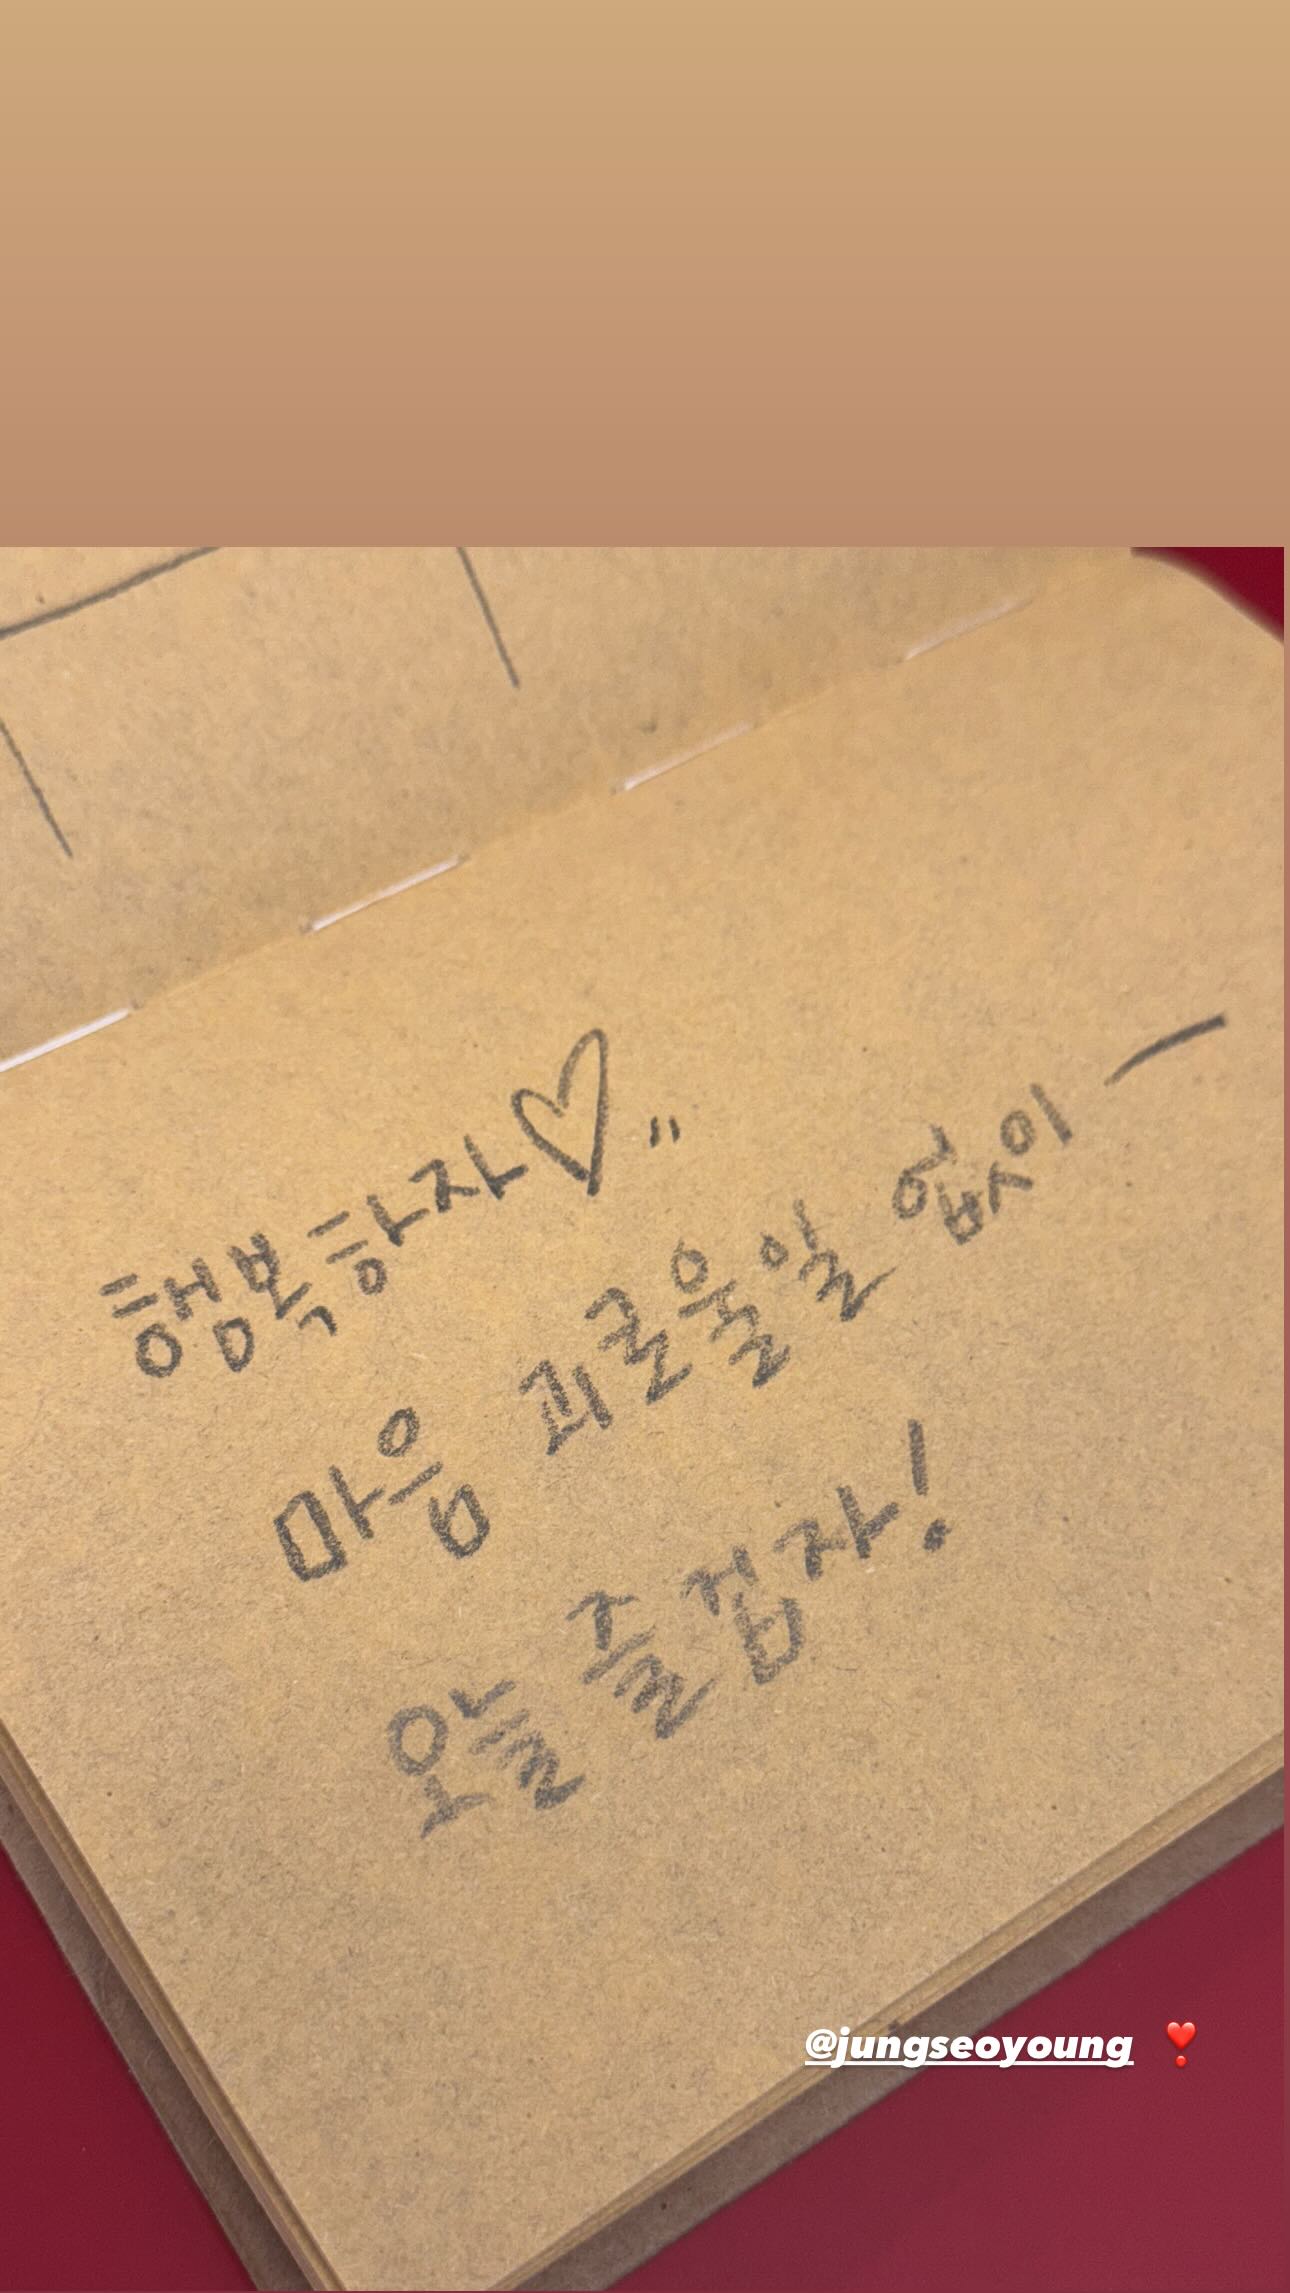 행복하자♡"
마음 괴로울일 없이 ㅡ
오늘 즐겁자!
@jungseoyoung ❣️